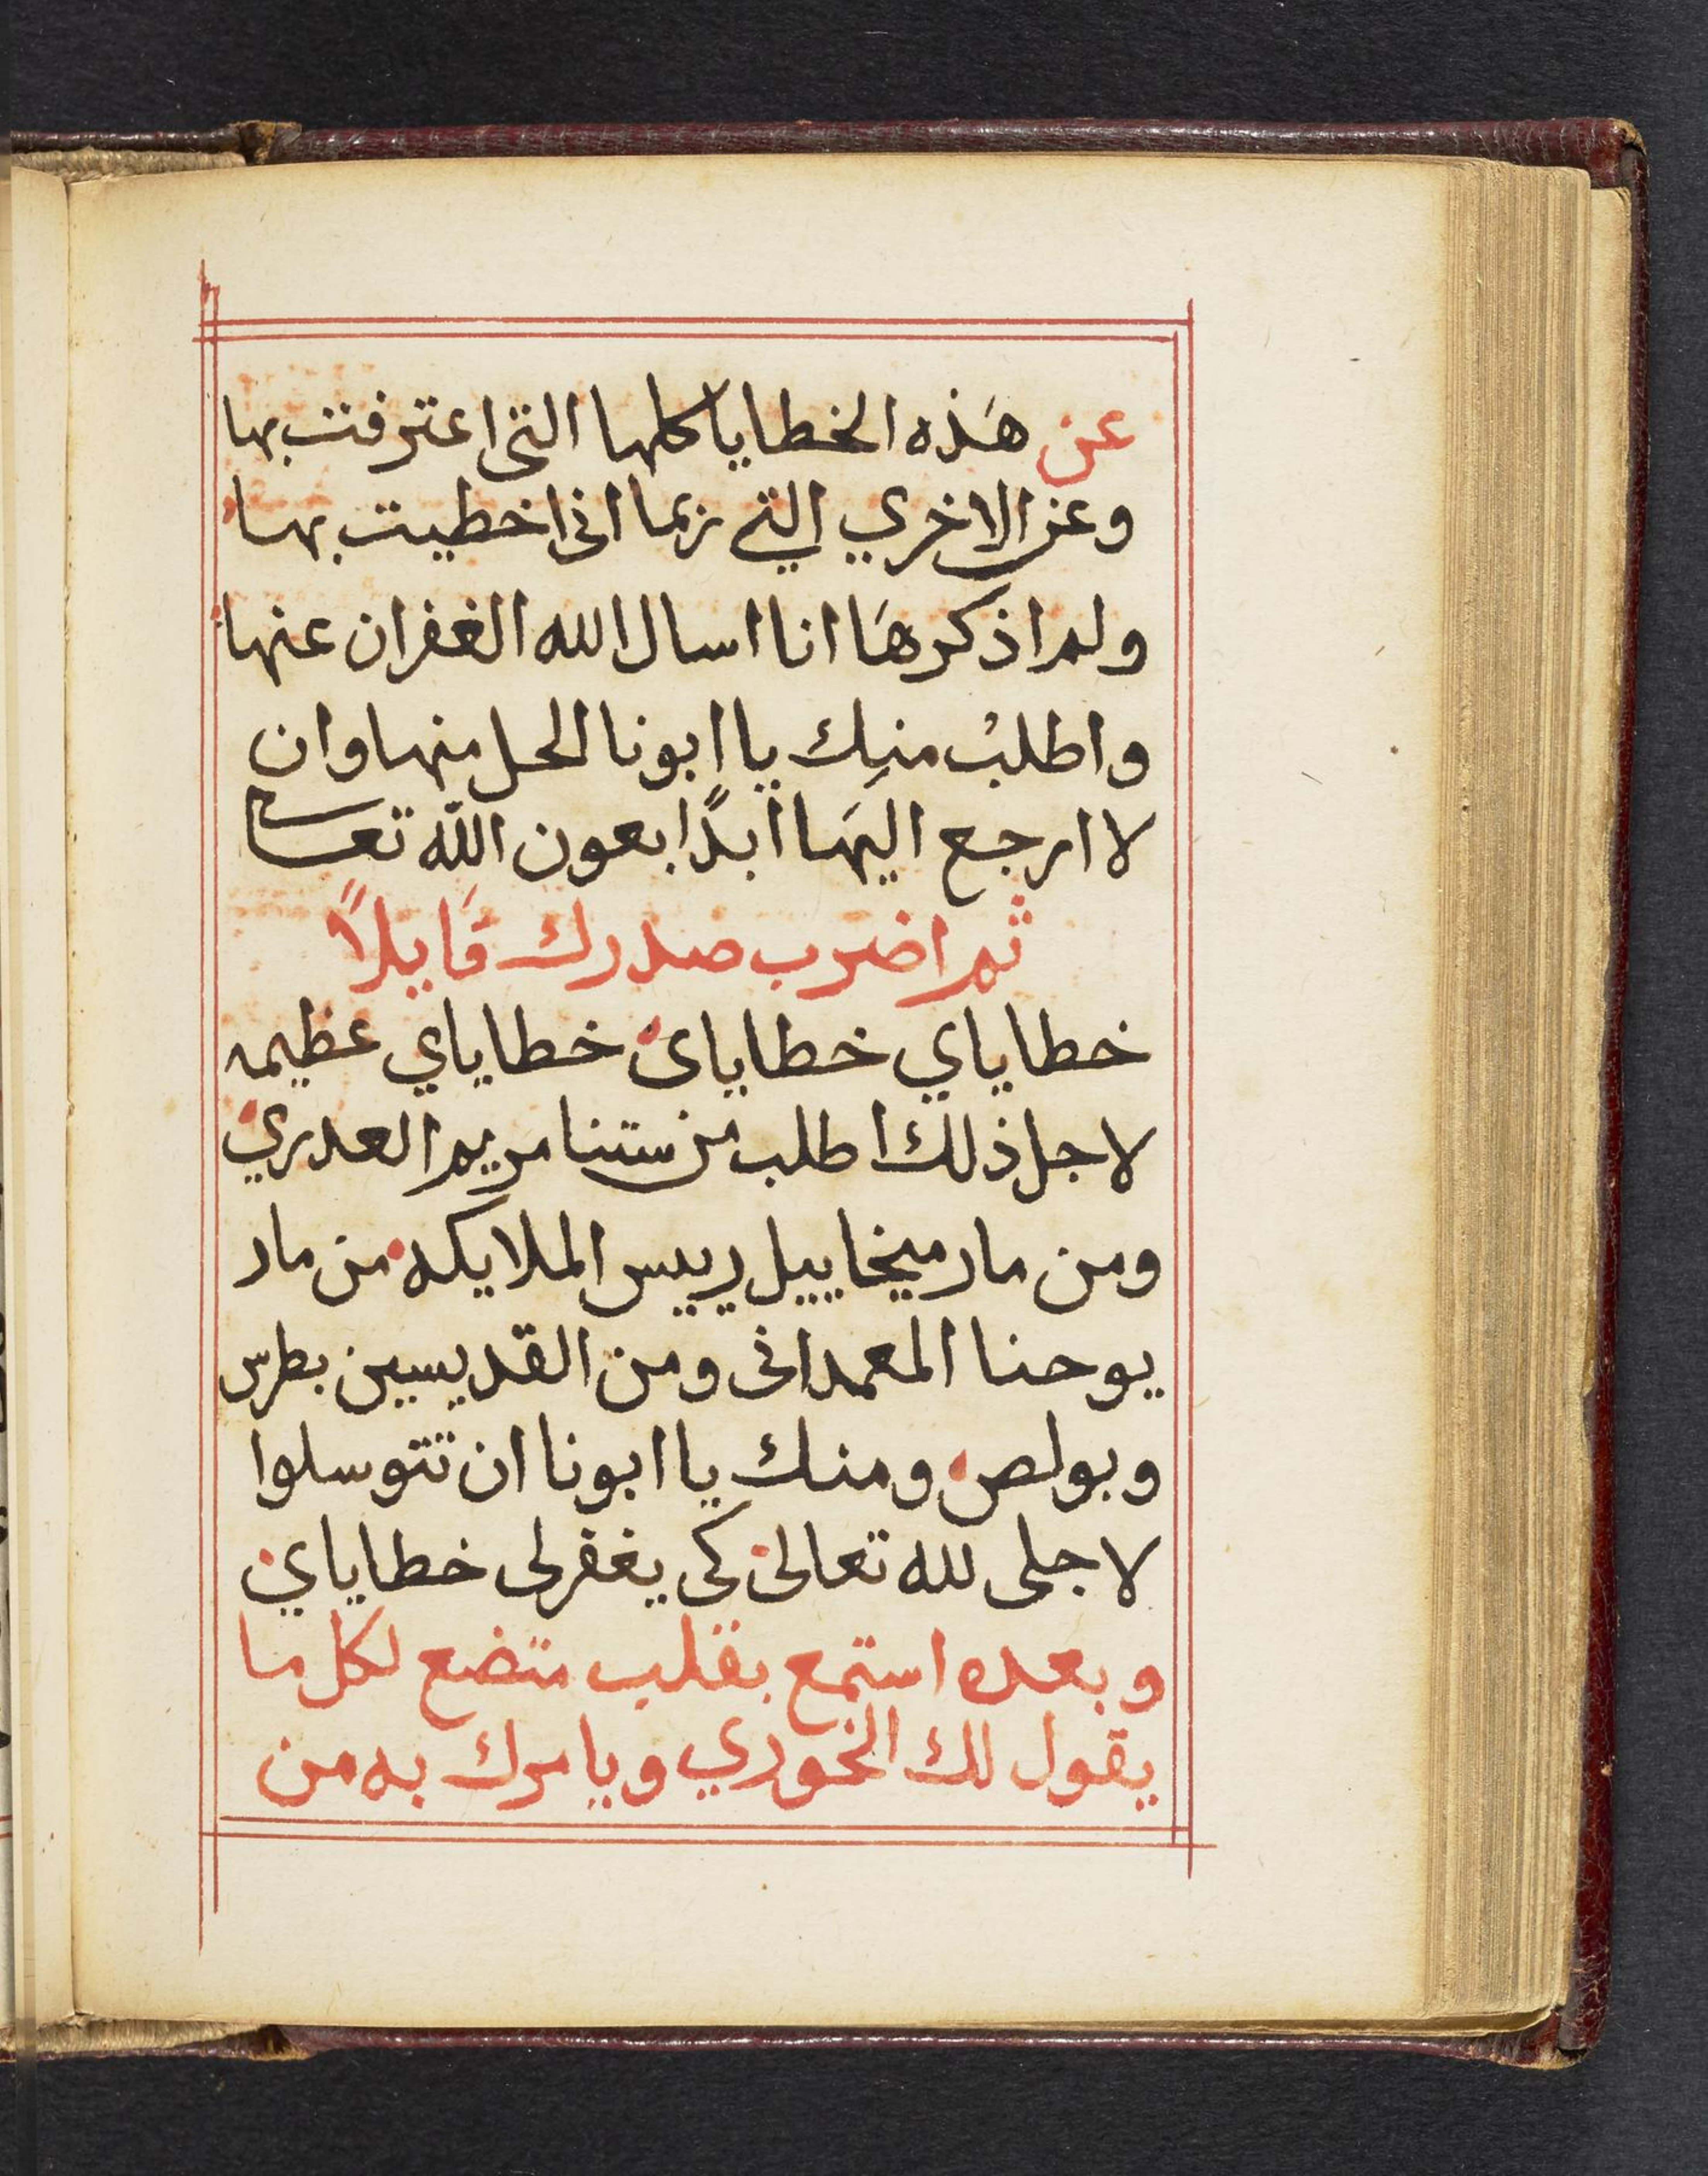 عن هَذه الخطايا كلها التى اعترفت بها
وعن الاخري التي ربما انى اخطيت بها
ولم اذكرهَا انا اسال الله الغفران عنها
واطلبْ منِك يا ابونا الحل منها وان
لا ارجع اليهَا ابدًا بعون اللّه تعالى
ثم اضرب صدرك قَايلاً
خطاياي خطاياى خطاياي عظيمه
لاجل ذلك اطلب من ستنا مريم العدري
ومن مار ميخاييل رييس الملايكه من مار
يوحنا المعمدانى ومن القديسين بطرس
وبولص ومنك يا ابونا ان تتوسلوا
لاجلى لله تعالى كى يغفر لى خطاياي
وبعده استمع بقلب متضع لكل ما
يقول لك الخوري ويامرك به من